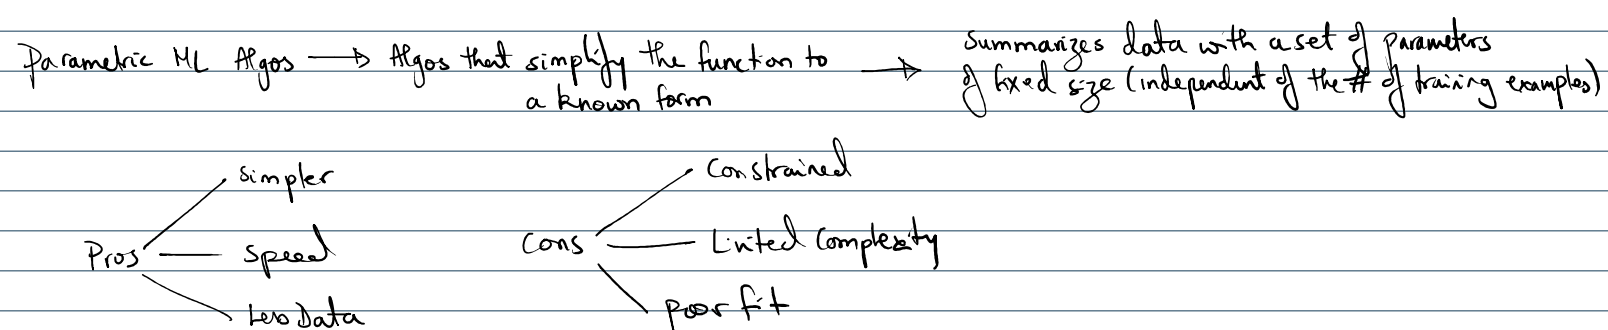 Parametric ML Algos → Algos that simplify the function to
a known form
→ Summarizes data with a set of parameters
of fixed size (independent of the # of training examples)
Pros
Simpler
Speed
Less Data
Cons
Constrained
Limited Complexity
Poor fit